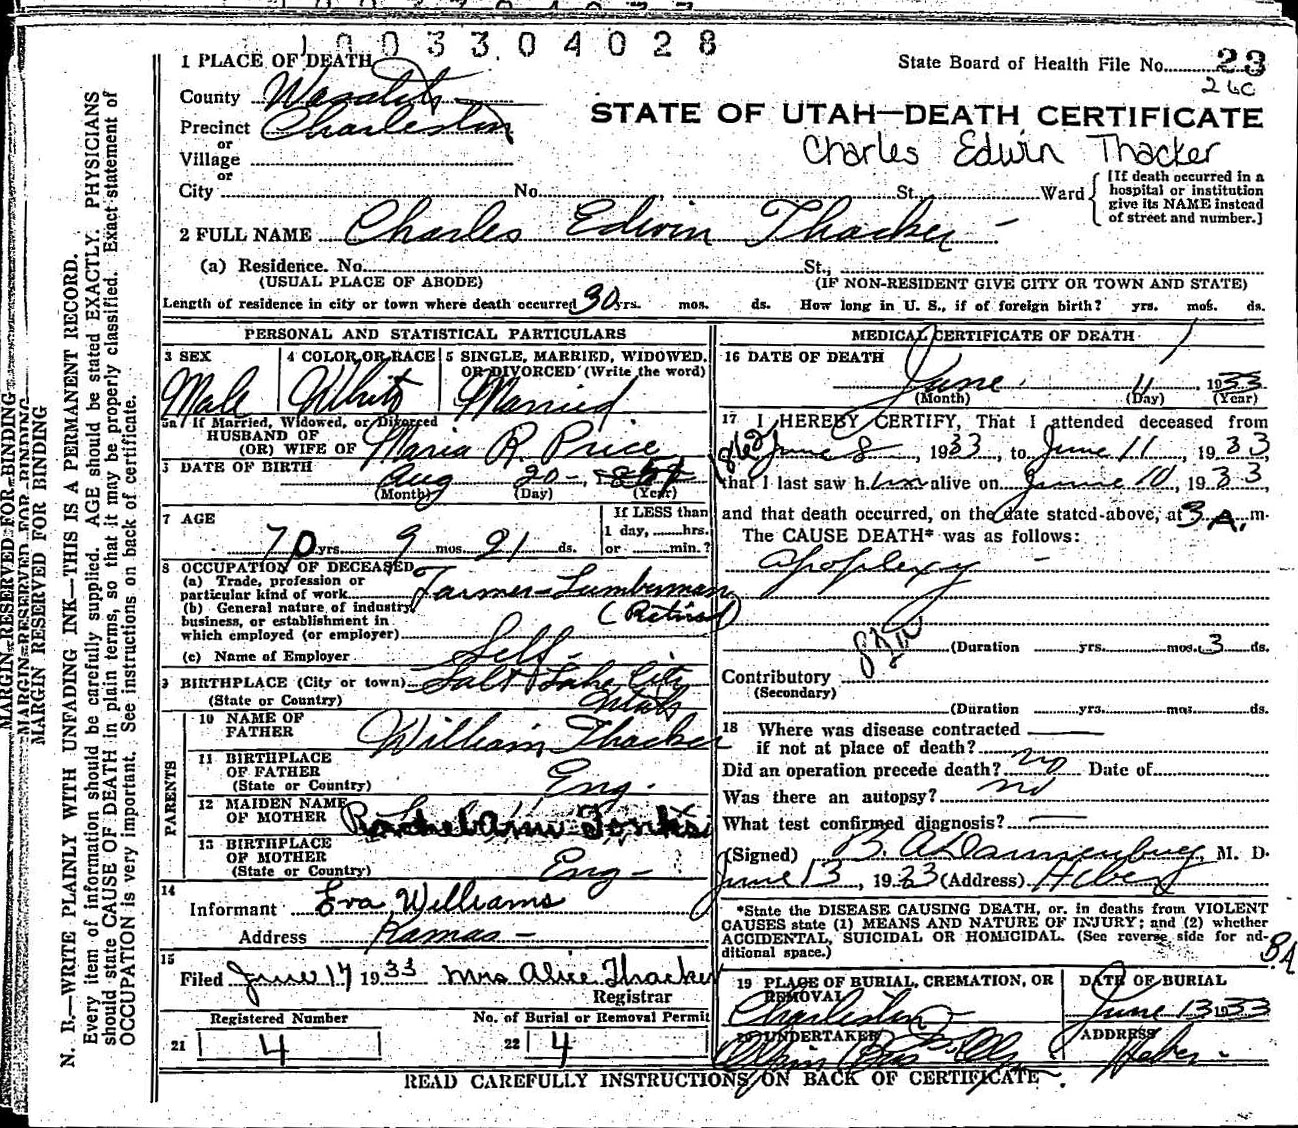 1003304028
1 PLACE OF DEATH
State Board of Health File No. 23
26C
County Wasatch
STATE OF UTAH—DEATH CERTIFICATE
Precinct Charleston
or
Charles Edwin Thacker
Village
or
City No. St. Ward
[If death occurred in a hospital or institution give its NAME instead of street and number.]
2 FULL NAME Charles Edwin Thacker
(a) Residence. No. St.,
(USUAL PLACE OF ABODE) (IF NON-RESIDENT GIVE CITY OR TOWN AND STATE)
Length of residence in city or town where death occurred 30 yrs. mos. ds. How long in U. S., if of foreign birth? yrs. mos. ds.
PERSONAL AND STATISTICAL PARTICULARS
3 SEX
Male
4 COLOR OR RACE
White
5 SINGLE, MARRIED, WIDOWED,
OR DIVORCED (Write the word)
Married
5a If Married, Widowed, or Divorced
HUSBAND OF
(OR) WIFE OF Maria R. Price
DATE OF BIRTH Aug 20
(Month) (Day) (Year)
7 AGE
70 yrs. 9 mos. 21 ds.
If LESS than
1 day, hrs.
or min.?
8 OCCUPATION OF DECEASED
(a) Trade, profession or
particular kind of work Farmer-Lumberman
(b) General nature of industry
business, or establishment in (Retired)
which employed (or employer)
(c) Name of Employer Self
BIRTHPLACE (City or town) Salt Lake City
(State or Country) Utah
PARENTS
10 NAME OF
FATHER William Thacker
11 BIRTHPLACE
OF FATHER
(State or Country) Eng.
12 MAIDEN NAME
OF MOTHER Rachel Ann Tonks
13 BIRTHPLACE
OF MOTHER
(State or Country) Eng
14
Informant Eva Williams
Address Kamas
15
Filed June 17 1933 Mrs Alice Thacker
Registrar
Registered Number
21 4
No. of Burial or Removal Permit
22 4
MEDICAL CERTIFICATE OF DEATH
16 DATE OF DEATH
June 11 1933
(Month) (Day) (Year)
17 I HEREBY CERTIFY, That I attended deceased from
June 8, 1933, to June 11, 1933,
that I last saw him alive on June 10, 1933,
and that death occurred, on the date stated above, at 3 A. m.
The CAUSE DEATH* was as follows:
Apoplexy
(Duration yrs. mos. 3 ds.
Contributory
(Secondary)
(Duration yrs. mos. ds.
18 Where was disease contracted
if not at place of death?
Did an operation precede death? no Date of
Was there an autopsy? no
What test confirmed diagnosis?
(Signed) B. A. Dannenburg, M. D.
June 13, 1933 (Address) Heber
*State the DISEASE CAUSING DEATH, or. in deaths from VIOLENT
CAUSES state (1) MEANS AND NATURE OF INJURY; and (2) whether
ACCIDENTAL, SUICIDAL OR HOMICIDAL. (See reverse side for ad-
ditional space.)
BA
19 PLACE OF BURIAL, CREMATION, OR
REMOVAL
Charleston
DATE OF BURIAL
June 13 1933
20 UNDERTAKER
ADDRESS
Heber
READ CAREFULLY INSTRUCTIONS ON BACK OF CERTIFICATE
MARGIN RESERVED FOR BINDING
MARGIN RESERVED FOR BINDING
MARGIN RESERVED FOR BINDING
N. B.—WRITE PLAINLY WITH UNFADING INK—THIS IS A PERMANENT RECORD.
Every item of information should be carefully supplied. AGE should be stated EXACTLY. PHYSICIANS
should state CAUSE OF DEATH in plain terms, so that it may be properly classified. Exact statement of
OCCUPATION is very important. See instructions on back of certificate.